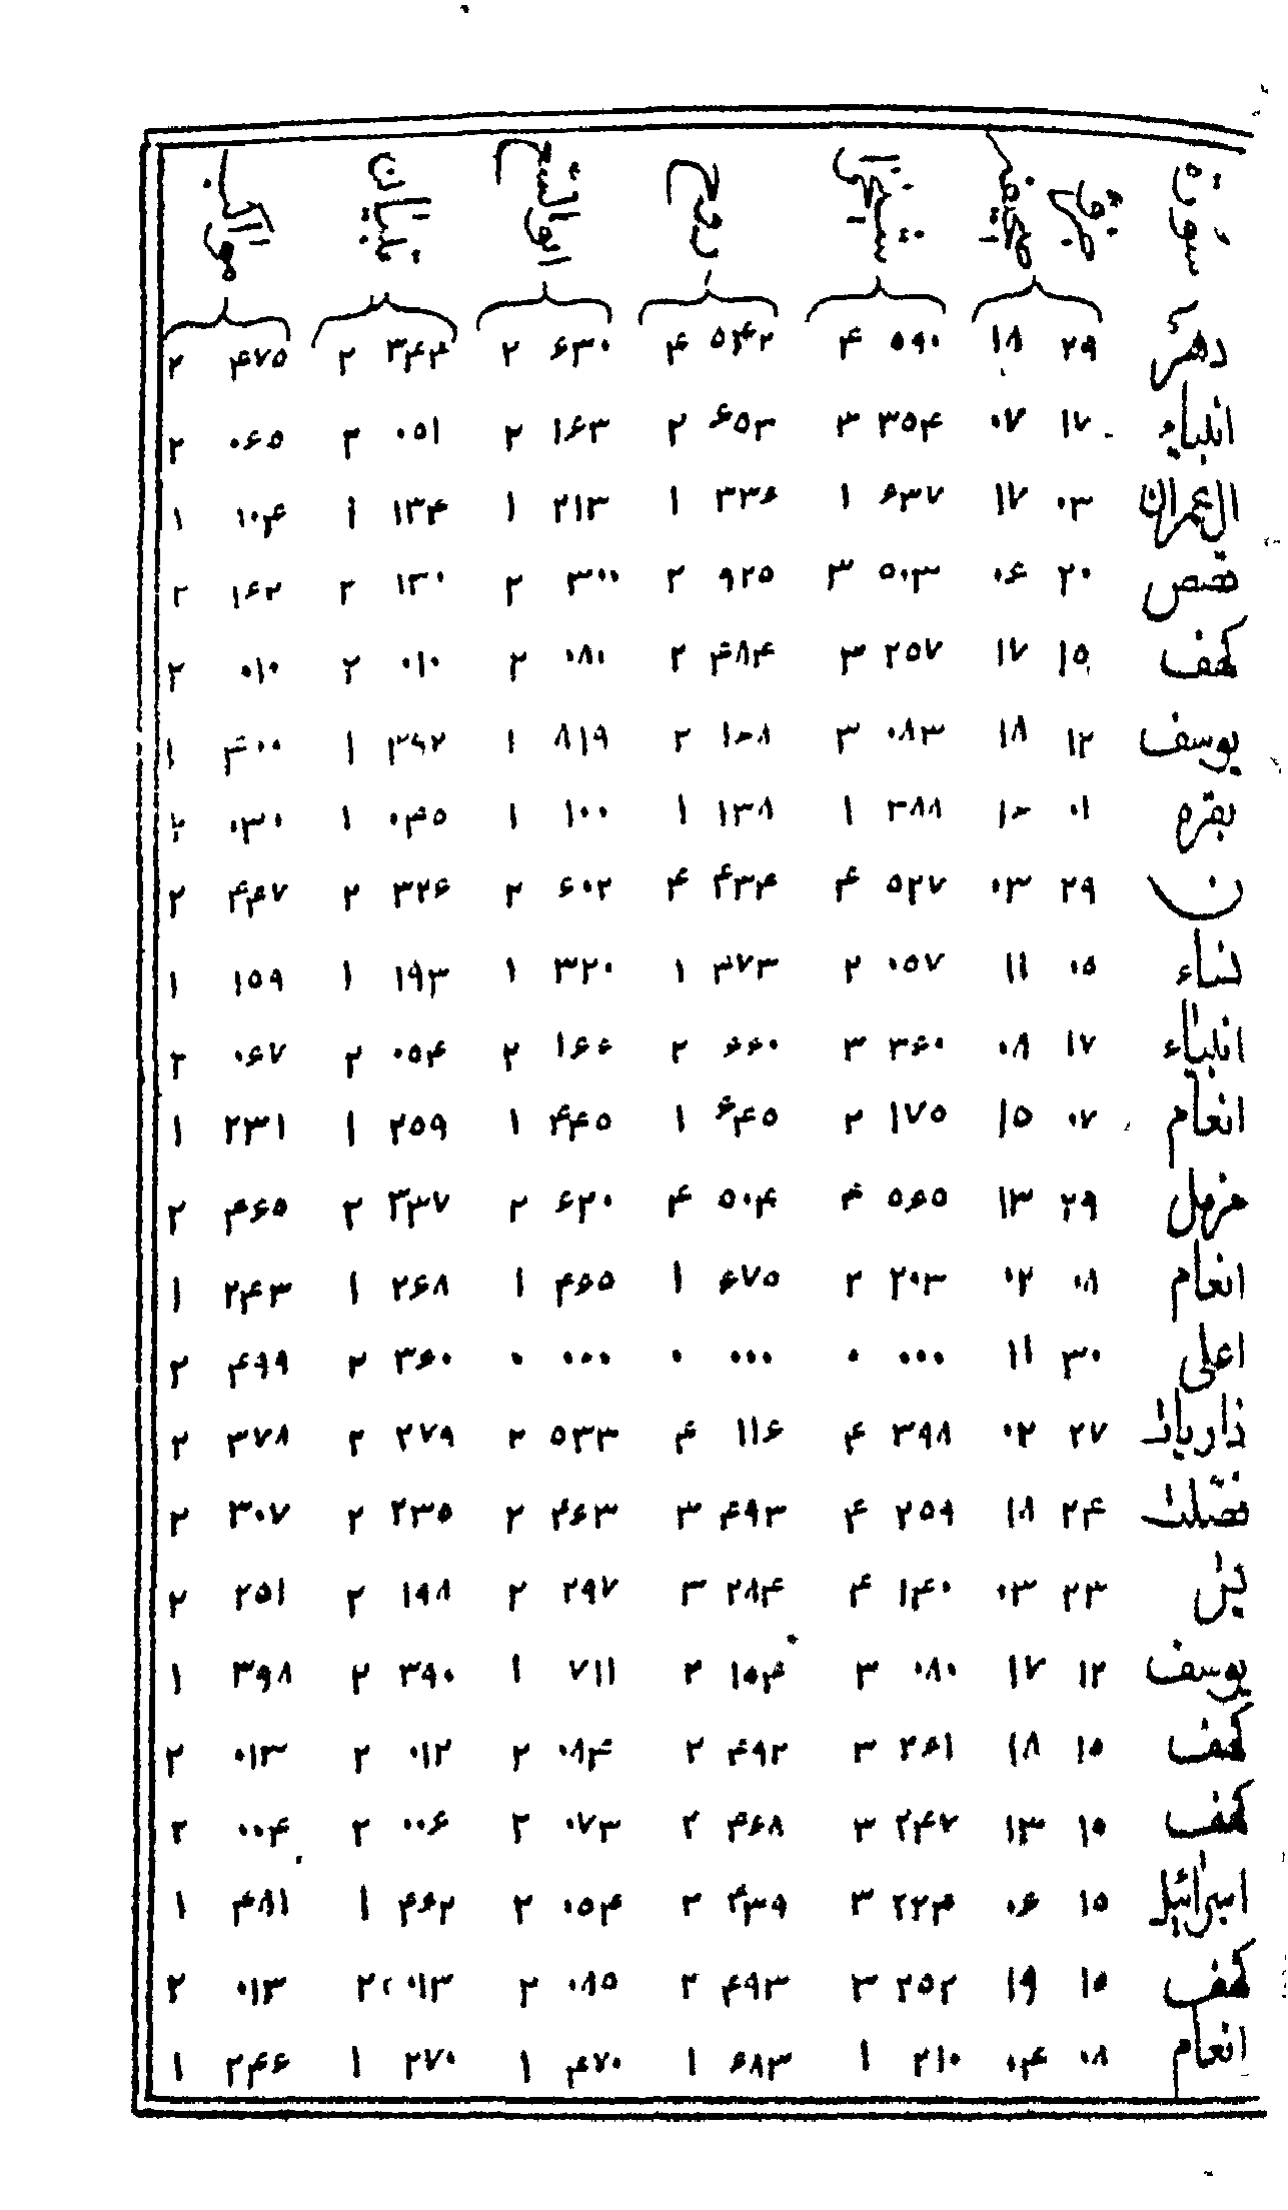 سوره
دهر ۲۹ ۱۸ ۵۹۰ ۴ ۵۴۲ ۴ ۶۳۰ ۲ ۳۴۴ ۲ ۴۷۵ ۲
انبیاء ۱۷ ۰۷ ۳۵۴ ۳ ۶۵۳ ۲ ۱۶۳ ۲ ۰۵۱ ۲ ۰۶۵ ۲
ال عمران ۰۳ ۱۷ ۶۳۷ ۱ ۳۳۶ ۱ ۲۱۳ ۱ ۱۳۴ ۱ ۱۰۴ ۱
قصص ۲۰ ۰۶ ۵۰۳ ۳ ۹۲۵ ۲ ۳۰۰ ۲ ۱۳۰ ۲ ۱۶۲ ۲
کهف ۱۵ ۱۷ ۲۵۷ ۳ ۴۸۴ ۲ ۰۸۰ ۲ ۰۱۰ ۲ ۰۱۰ ۲
یوسف ۱۲ ۱۸ ۰۸۳ ۳ ۱۰۸ ۲ ۸۱۹ ۱ ۳۹۲ ۱ ۴۰۰ ۱
بقره ۰۱ ۳۸۸ ۱ ۱۳۸ ۱ ۱۰۰ ۱ ۰۴۵ ۱ ۰۳۰ ۲
ن ۲۹ ۰۳ ۵۲۷ ۴ ۴۳۴ ۴ ۶۰۲ ۲ ۳۲۶ ۲ ۴۴۷ ۲
نساء ۰۵ ۱۱ ۰۵۷ ۲ ۳۷۳ ۱ ۳۲۰ ۱ ۱۹۳ ۱ ۱۵۹ ۱
انبیاء ۱۷ ۰۸ ۳۶۰ ۳ ۶۶۰ ۲ ۱۶۶ ۲ ۰۵۴ ۲ ۰۶۷ ۲
انعام ۰۷ ۱۵ ۱۷۵ ۲ ۶۴۵ ۱ ۴۴۵ ۱ ۲۵۹ ۱ ۲۳۱ ۱
مزمل ۲۹ ۱۳ ۵۶۵ ۴ ۵۰۴ ۴ ۶۲۰ ۲ ۳۳۷ ۲ ۴۶۵ ۲
انعام ۰۸ ۰۲ ۲۰۳ ۲ ۶۷۵ ۱ ۴۶۵ ۱ ۲۶۸ ۱ ۲۴۳ ۱
اعلی ۳۰ ۱۱ ۰۰۰ ۰ ۰۰۰ ۰ ۰۰۰ ۰ ۳۶۰ ۲ ۴۹۹ ۲
ذاریات ۲۷ ۰۲ ۳۹۸ ۴ ۱۱۶ ۴ ۵۳۳ ۲ ۲۷۹ ۲ ۳۷۸ ۲
فصّلت ۲۴ ۱۸ ۲۵۹ ۴ ۴۹۳ ۳ ۴۶۳ ۲ ۲۳۵ ۲ ۳۰۷ ۲
یس ۲۳ ۰۳ ۱۴۰ ۴ ۲۸۴ ۳ ۲۹۷ ۲ ۱۹۸ ۲ ۲۵۱ ۲
یوسف ۱۲ ۱۷ ۰۸۰ ۳ ۱۰۴ ۲ ۷۱۱ ۱ ۳۹۰ ۲ ۳۹۸ ۱
کهف ۱۵ ۱۸ ۲۶۱ ۳ ۴۹۲ ۲ ۰۸۴ ۲ ۰۱۲ ۲ ۰۱۳ ۲
کهف ۱۵ ۱۳ ۲۴۷ ۳ ۴۶۸ ۲ ۰۷۳ ۲ ۰۰۶ ۲ ۰۰۴ ۲
اسرائیل ۱۵ ۰۶ ۲۲۴ ۳ ۴۳۹ ۲ ۰۵۴ ۲ ۴۶۲ ۱ ۴۸۱ ۱
کهف ۱۵ ۱۹ ۲۵۲ ۳ ۴۹۳ ۲ ۰۸۵ ۲ ۰۱۳ ۲ ۰۱۳ ۲
انعام ۰۸ ۰۴ ۲۱۰ ۱ ۶۸۳ ۱ ۴۷۰ ۱ ۲۷۰ ۱ ۲۴۶ ۱